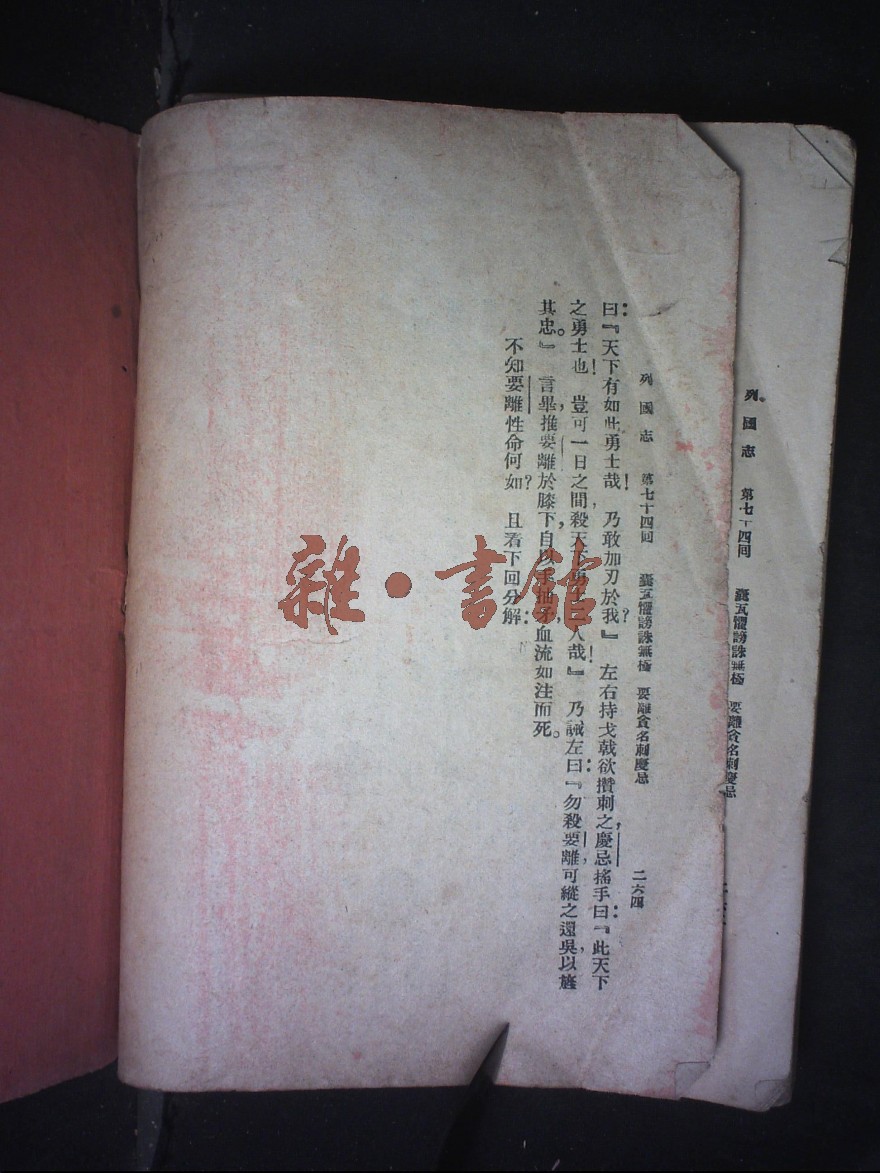 列國志 第七十四回 囊瓦懼謗誅無極 要離貪名刺慶忌
列國志 第七十四回 囊瓦懼謗誅無極 要離貪名刺慶忌 二六四
曰：『天下有如此勇士哉！乃敢加刃於我？』左右持戈戟欲攢刺之，慶忌搖手曰：『此天下
之勇士也！豈可一日之間，殺天下勇士二人哉！』乃誡左曰：『勿殺要離，可縱之還吳，以旌
其忠。』言畢，推要離於膝下，自以手抽矛，血流如注而死。
不知要離性命何如？且看下回分解：
雜·書館